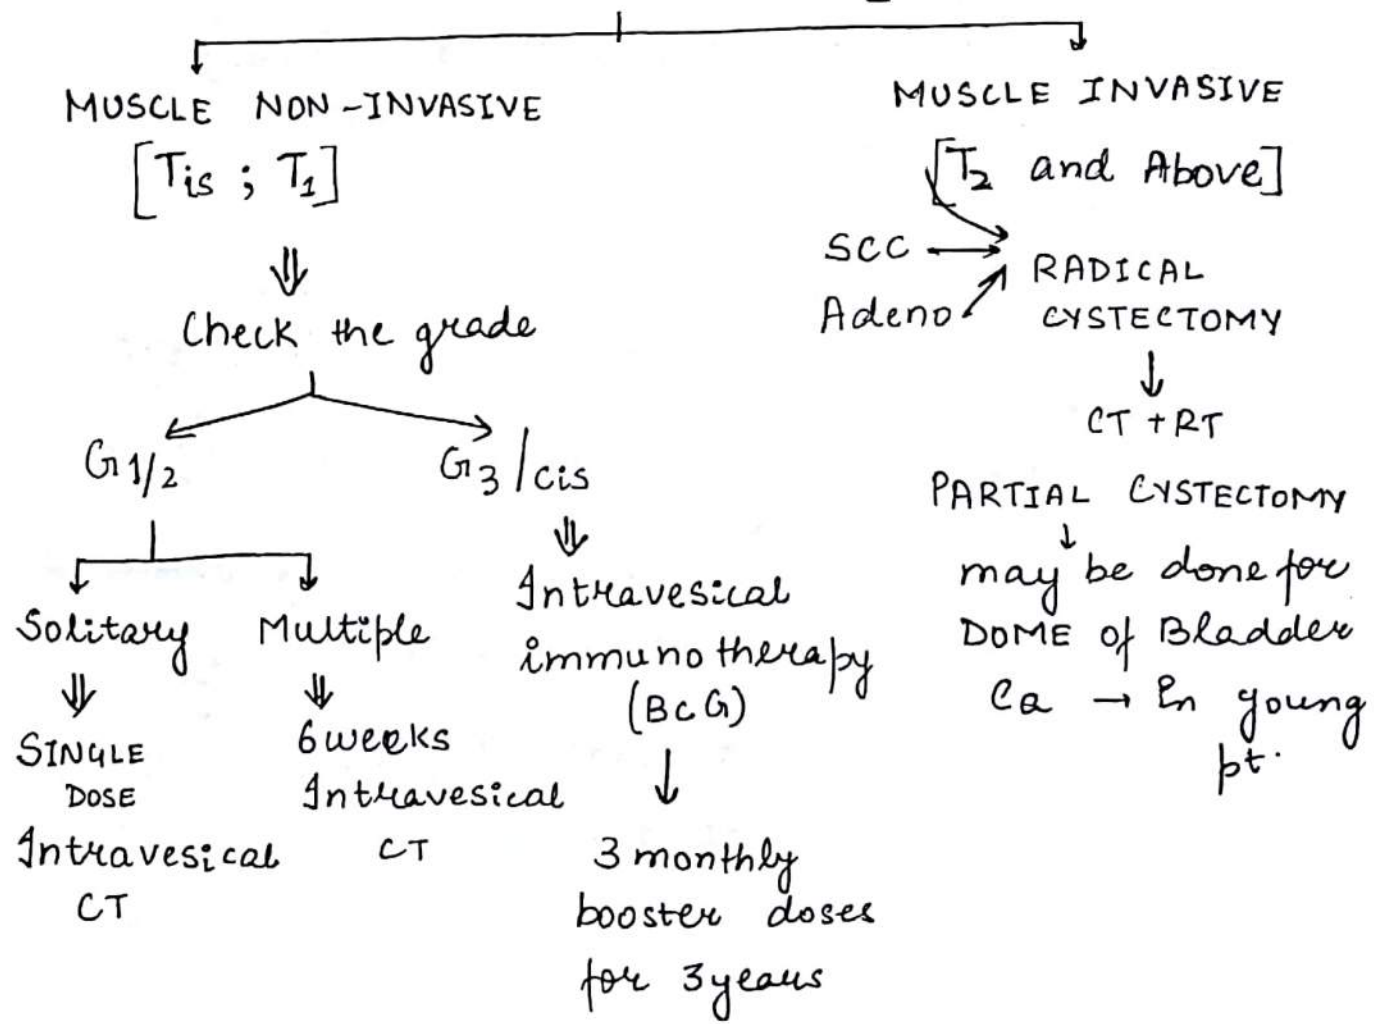 MUSCLE NON-INVASIVE
[Tis ; T1]
Check the grade
G1/2
G3/cis
Solitary
Multiple
SINGLE
DOSE
Intravesical
CT
6 weeks
Intravesical
CT
Intravesical
immunotherapy
(BCG)
3 monthly
booster doses
for 3 years
MUSCLE INVASIVE
[T2 and Above]
SCC
Adeno
RADICAL
CYSTECTOMY
CT + RT
PARTIAL CYSTECTOMY
may be done for
DOME of Bladder
Ca → In young
pt.